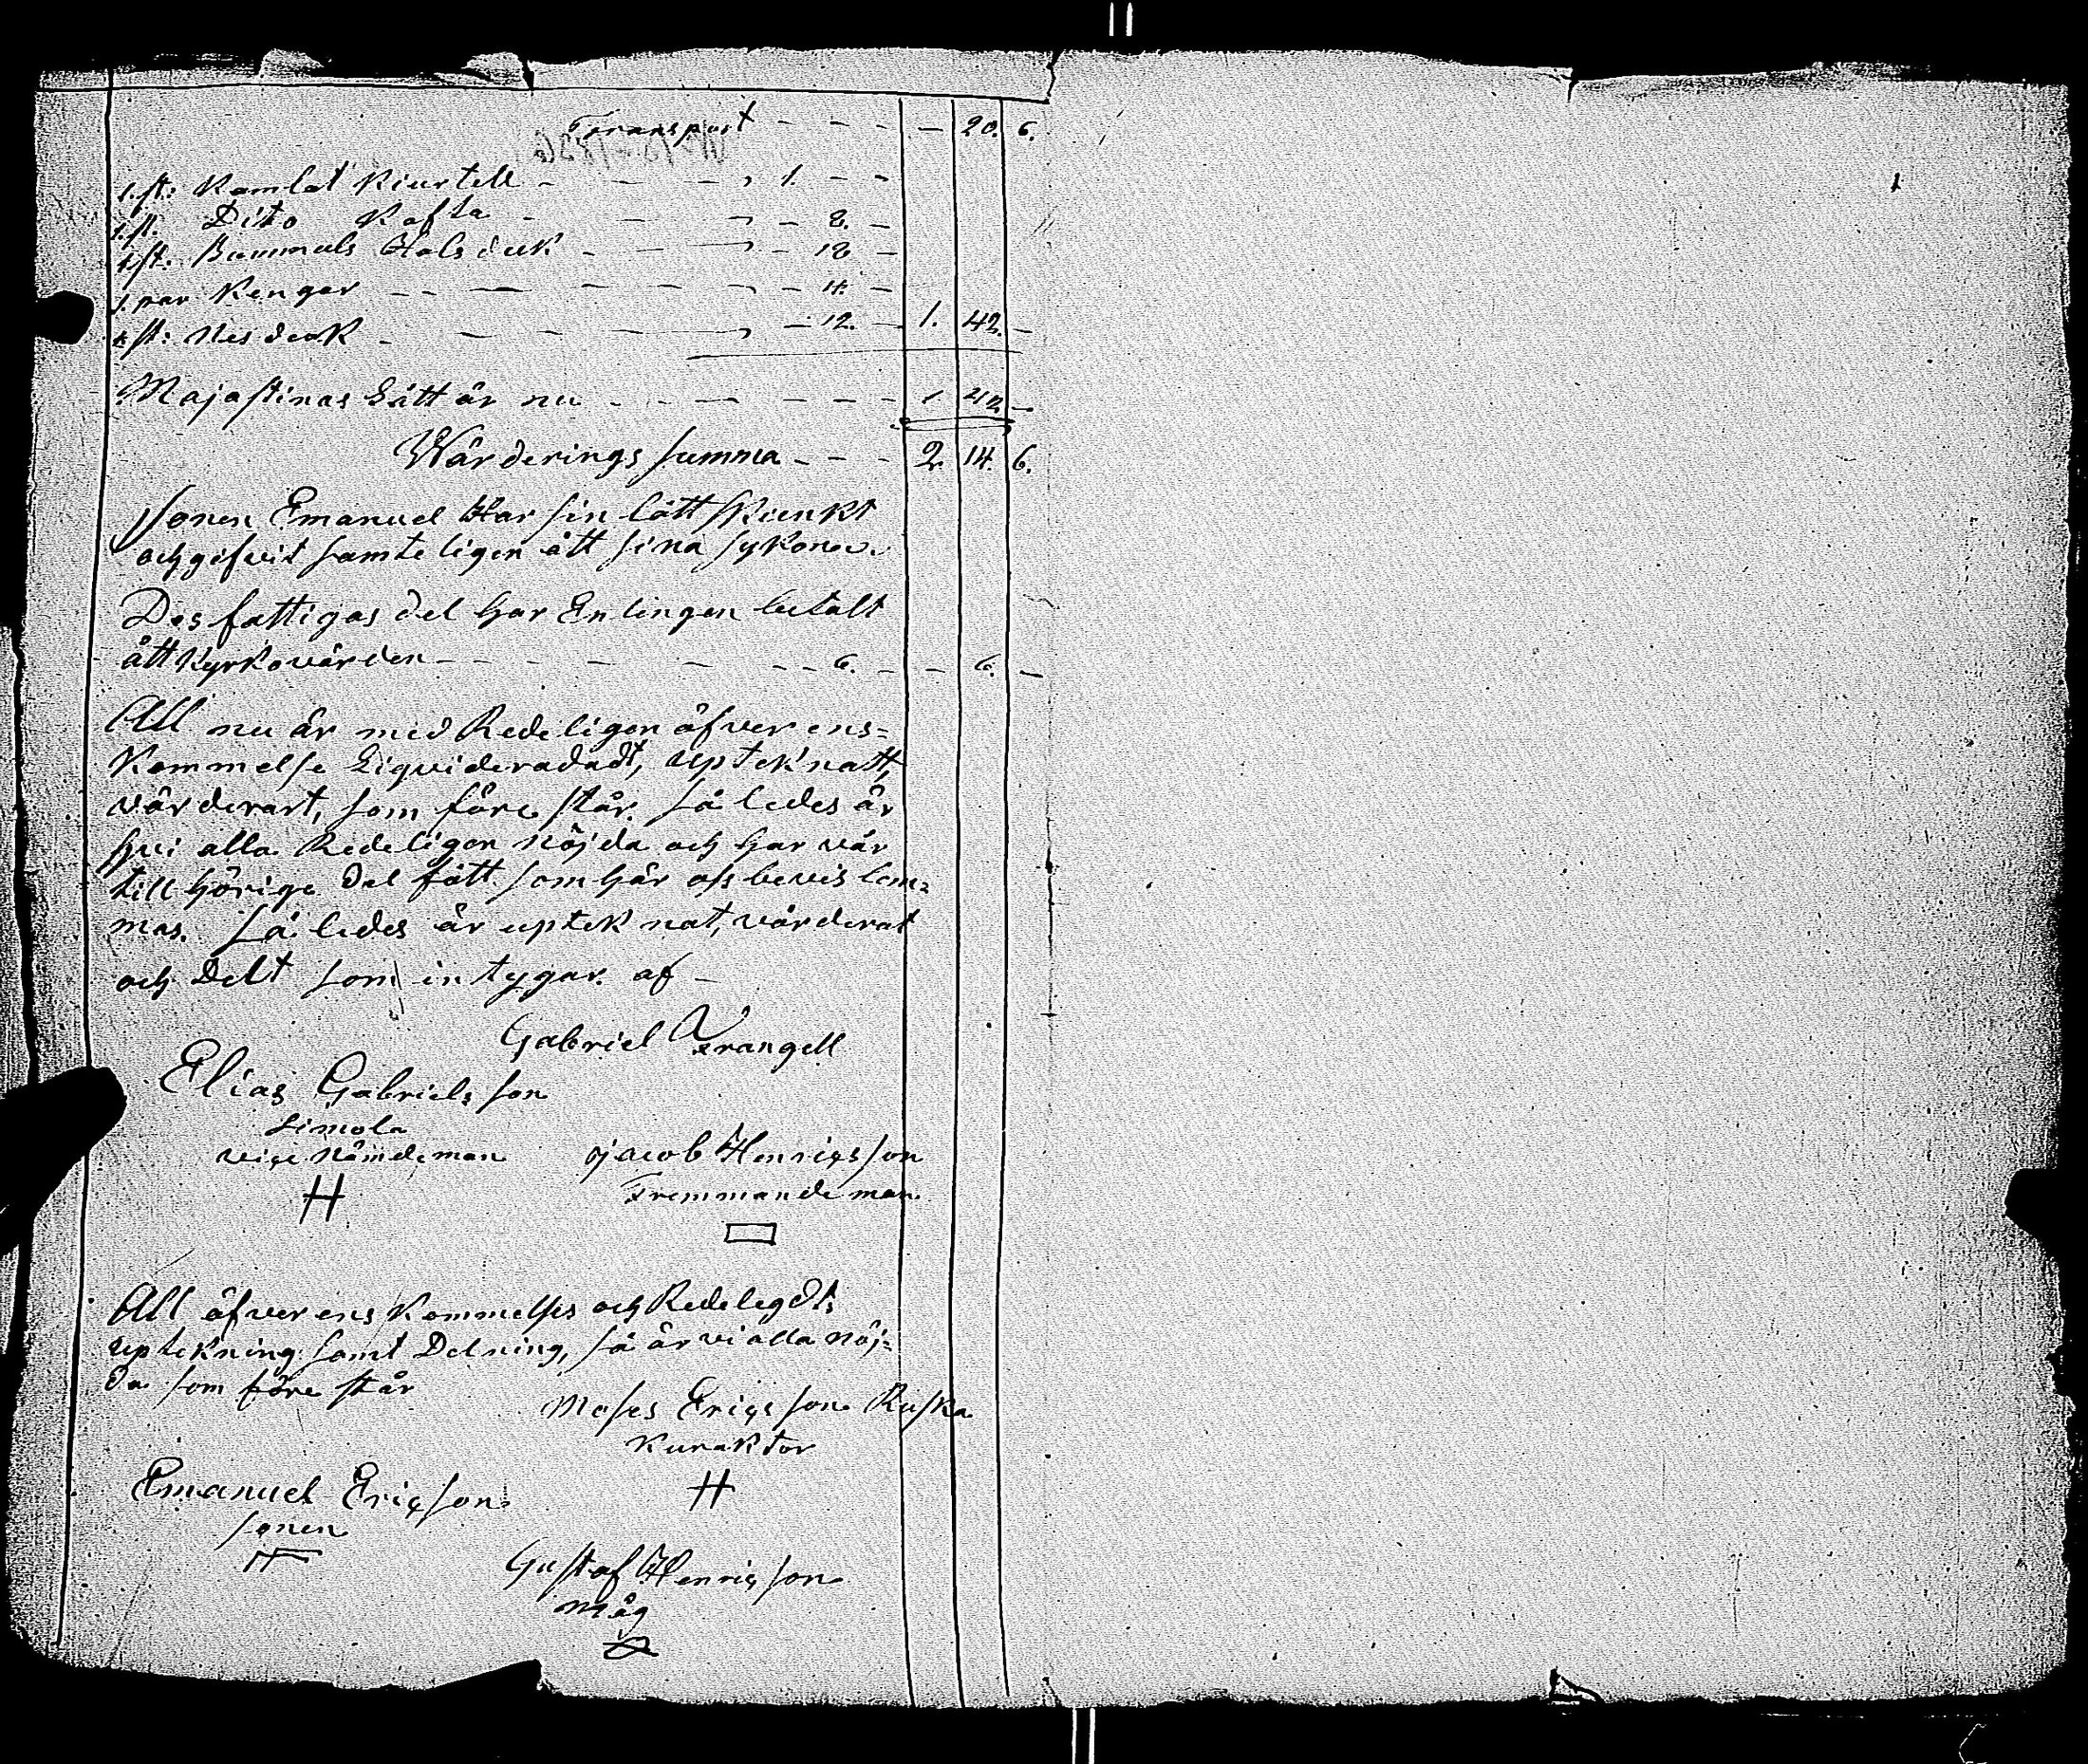 Transport - - - - 20. 6.
1. st: Kamlot Kiurtell - - - , 1. - -
1. st. Dito Kofta - - - - 8. -
1. st: Bummuls Halsduk - - - - 18 -
1. par Kengor - - - - - - 4. -
1 st: Nesduk - - - - - 12. - 1. 42. -
Majastinas Lått är nu - - - - - - 1 42 -
Wärderings summa - - - 2. 14. 6.
Sonen Emanuel Har sin lått skiunkt
och gifvit samteligen ått sina sykona.
Des fattigas del har Enlingen betalt
ått Kyrkovärden - - - - - - 6. - - 6. -
All nu är med Redeligen öfver ens=
Kommelse Liqvideradadt, upteknatt,
värderart, som före står. Så ledes är
hvi alla Redeligen nöjda och har vår
tillhörige del fått som här oss bevis lem=
mas. Så ledes är upteknat, värderat
och Delt som intygar. af -
Gabriel Frangell
Elias Gabrielsson
Simola
vice Nämdeman
H
Jacob Henricsson
Fremmande man
All öfver ens Kommelses och Redelegdt
uptekning samt Delning, så är vi alla nöj=
da som före står
Moses Ericsson Ruska
Kuraktor
H
Emanuel Ericson
sonen
Gustaf Henricson
måg